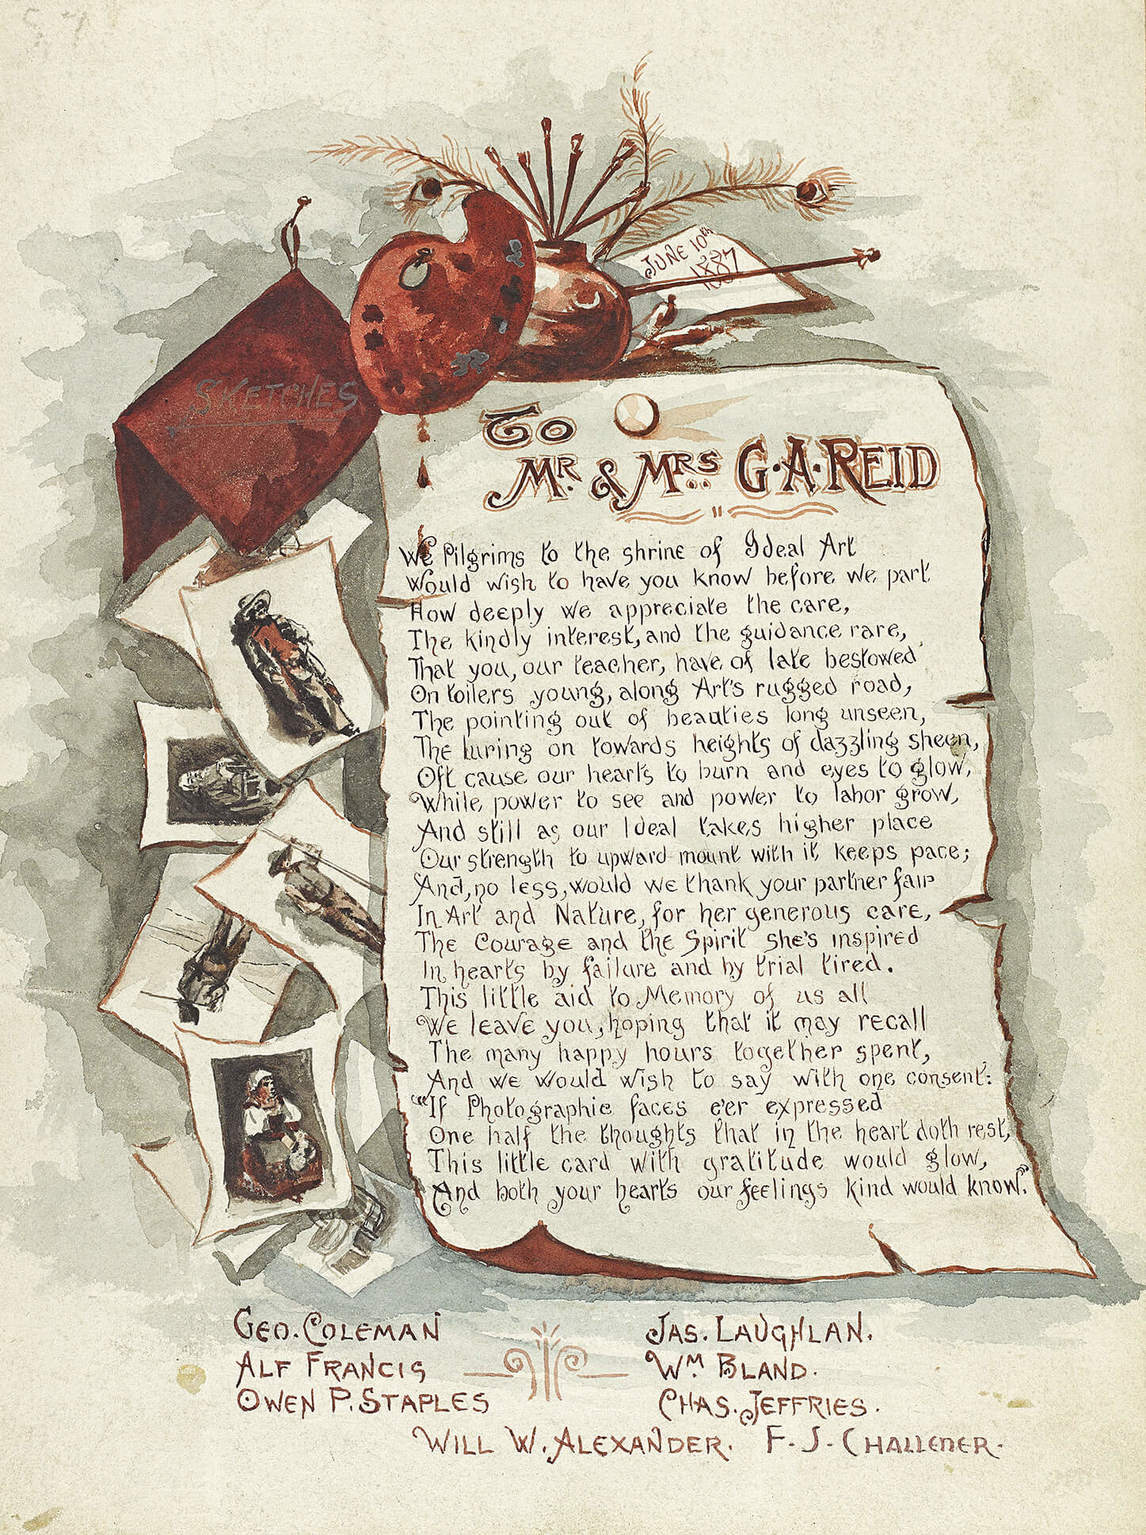 JUNE 10th
1887
SKETCHES
To
Mr & Mrs G·A·Reid
We Pilgrims to the shrine of Ideal Art
Would wish to have you know before we part
How deeply we appreciate the care,
The kindly interest, and the guidance rare,
That you, our teacher, have of late bestowed
On toilers young, along Art's rugged road,
The pointing out of beauties long unseen,
The luring on towards heights of dazzling sheen,
Oft cause our hearts to burn and eyes to glow,
While power to see and power to labor grow,
And still as our Ideal takes higher place
Our strength to upward mount with it keeps pace;
And, no less, would we thank your partner fair
In Art and Nature, for her generous care,
The Courage and the Spirit she's inspired
In hearts by failure and by trial tired.
This little aid to Memory of us all
We leave you, hoping that it may recall
The many happy hours together spent,
And we would wish to say with one consent:
"If Photographie faces e'er expressed
One half the thoughts that in the heart doth rest,
This little card with gratitude would glow,
And both your hearts our feelings kind would know."
Geo. Coleman
Alf Francis
Owen P. Staples
Jas. Laughlan.
Wm Bland.
Chas. Jeffries.
Will W. Alexander. F. S. Challener.